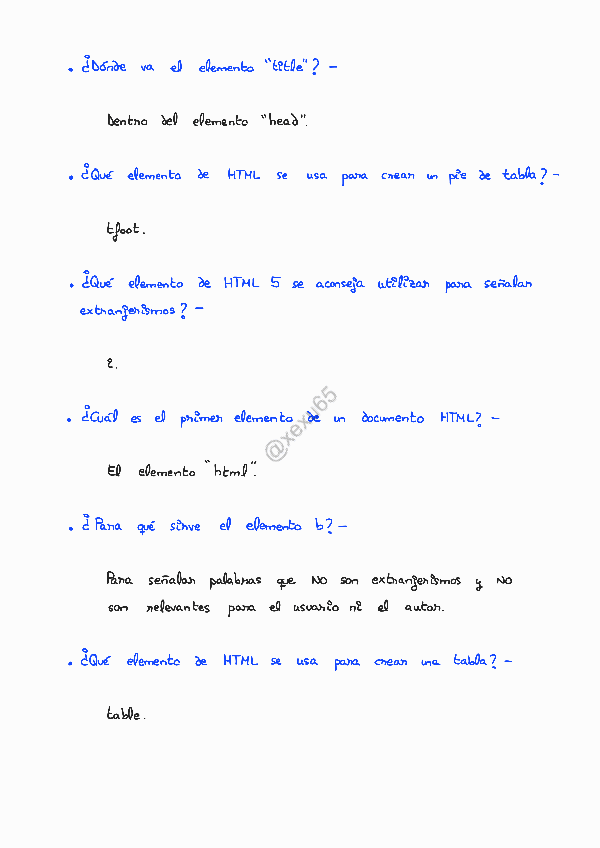 • ¿Dónde va el elemento "title"? –
Dentro del elemento "head".
• ¿Qué elemento de HTML se usa para crear un pie de tabla? –
tfoot.
• ¿Qué elemento de HTML 5 se aconseja utilizar para señalar
extranjerismos? –
i.
• ¿Cuál es el primer elemento de un documento HTML? –
El elemento "html".
• ¿Para qué sirve el elemento b? –
Para señalar palabras que NO son extranjerismos y NO
son relevantes para el usuario ni el autor.
• ¿Qué elemento de HTML se usa para crear una tabla? –
table.
@xexu65